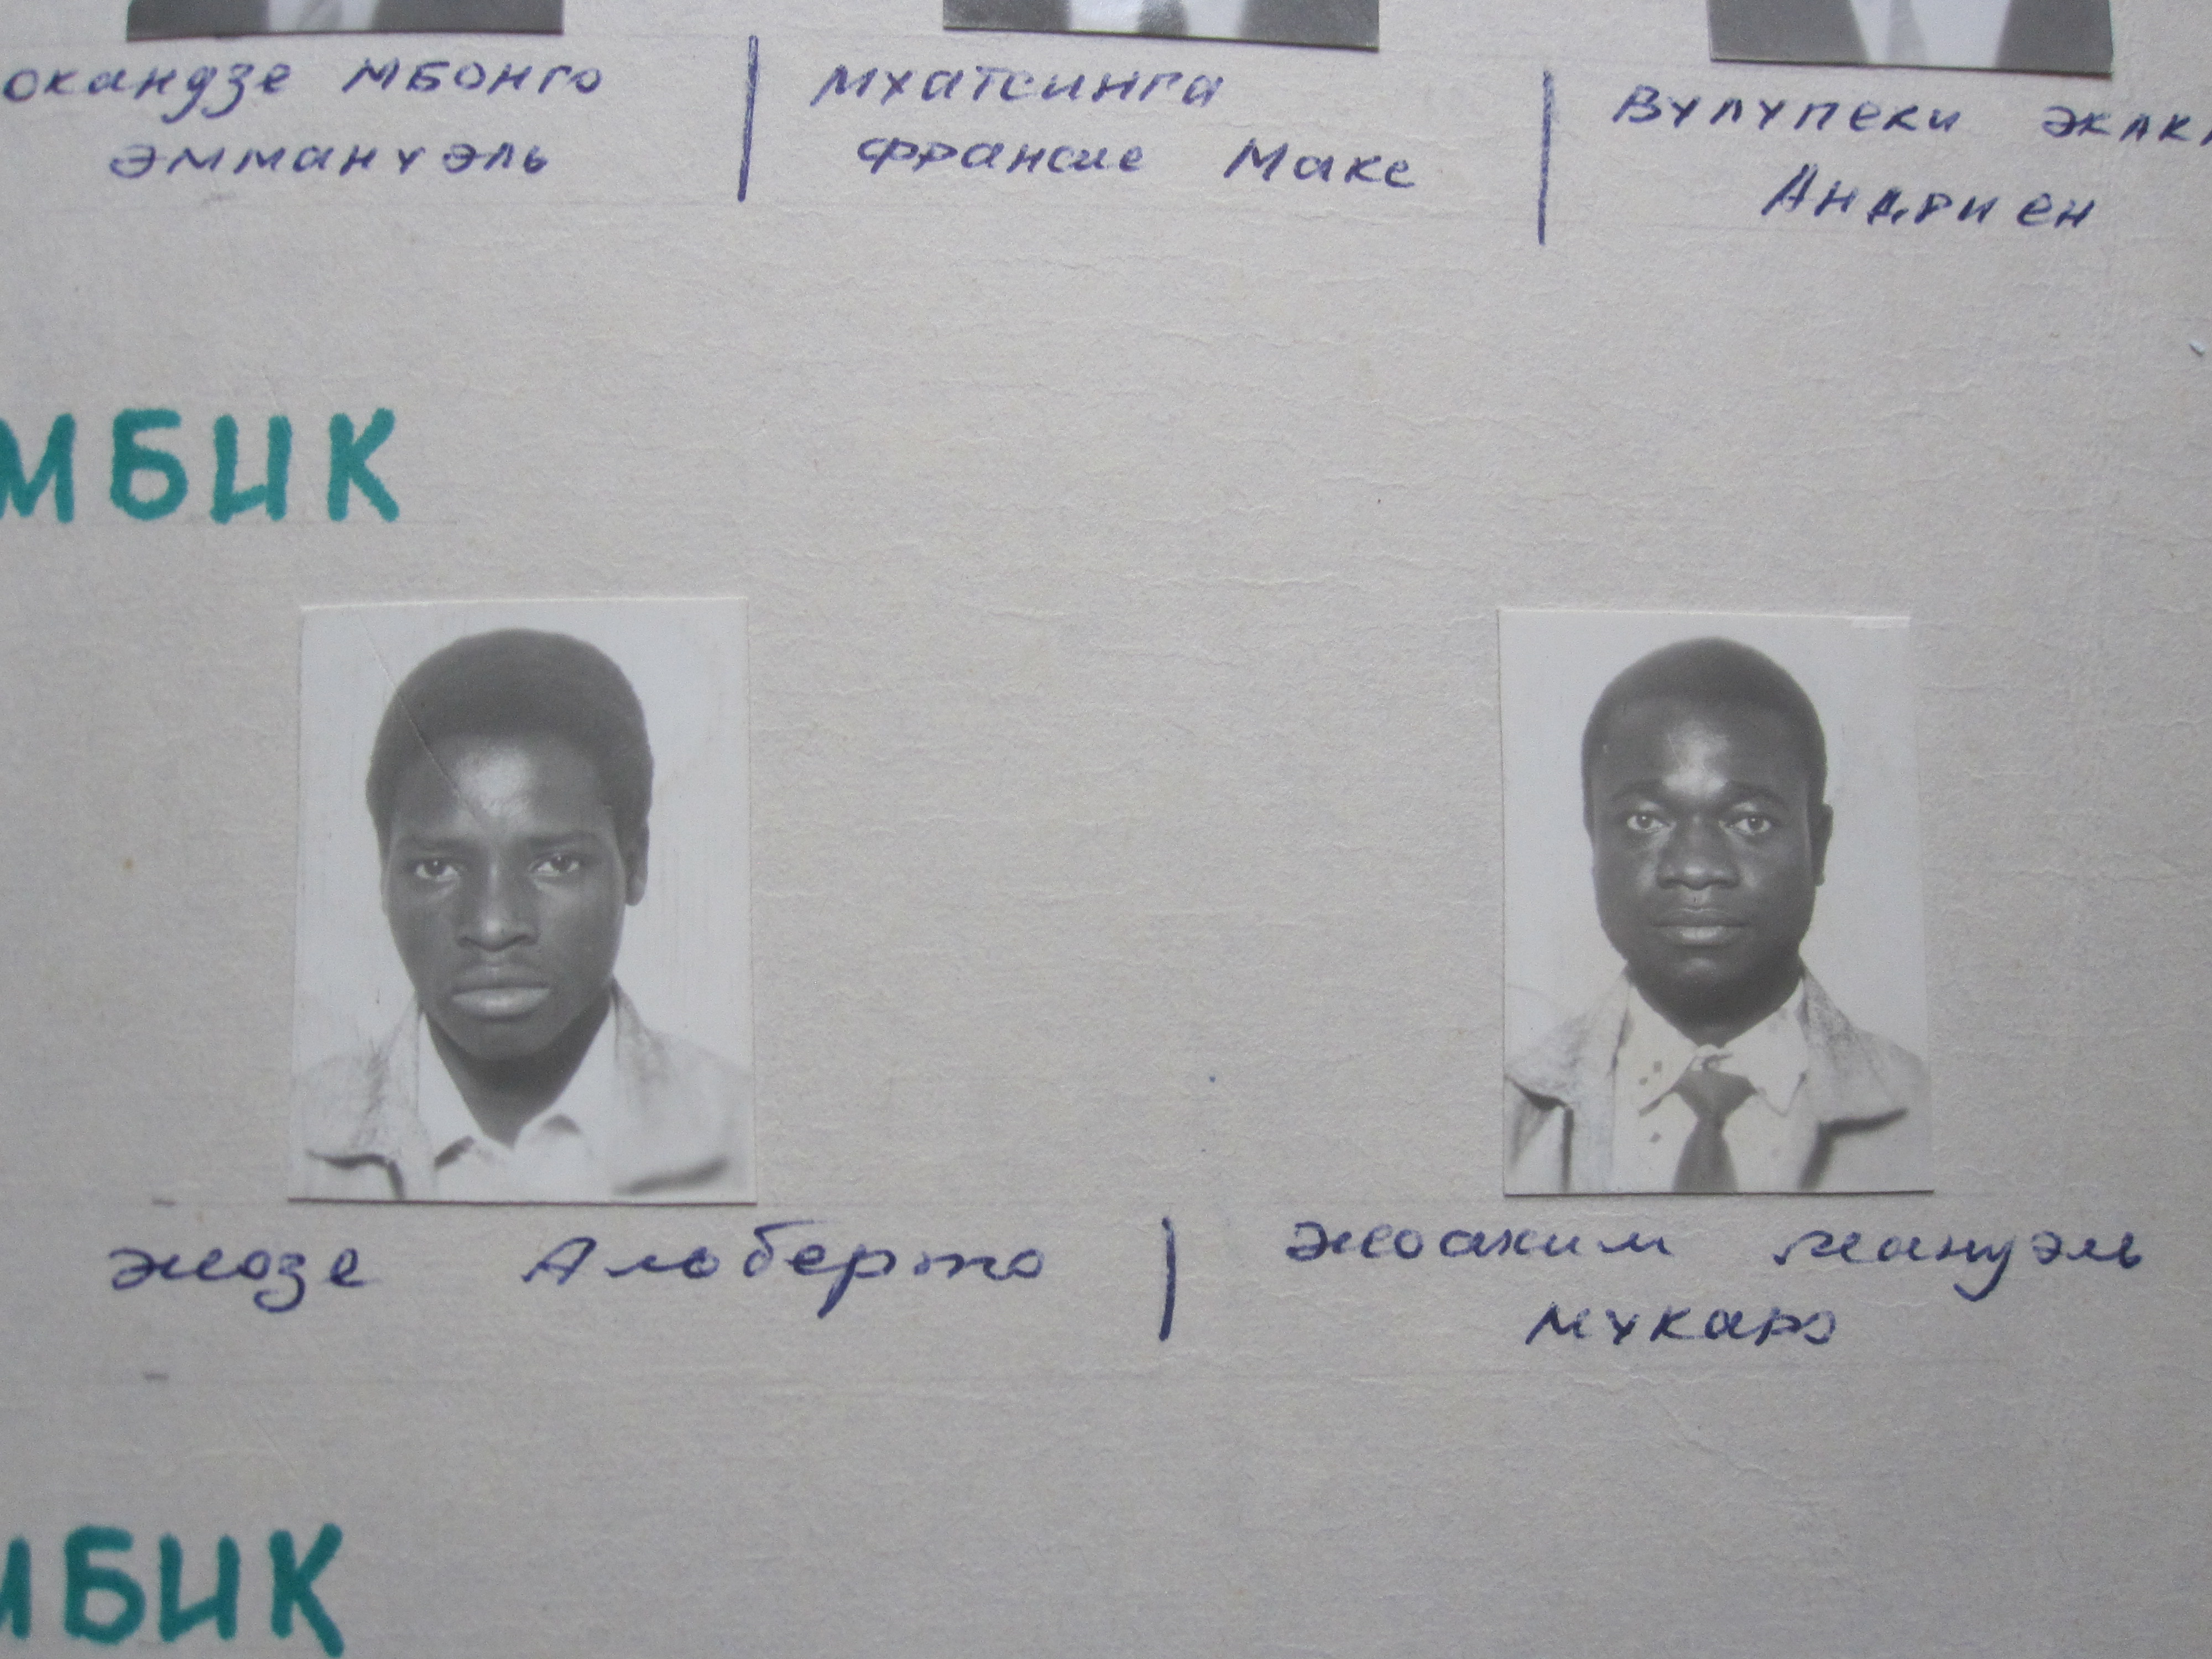 окандзе Мбонго
Эммануэль
Мхатсинга
Франсис Макс
Вулупеки
Андриен
МБИК
Жозе Альберто
Жоаким Мануэль
Мукаро
МБИК